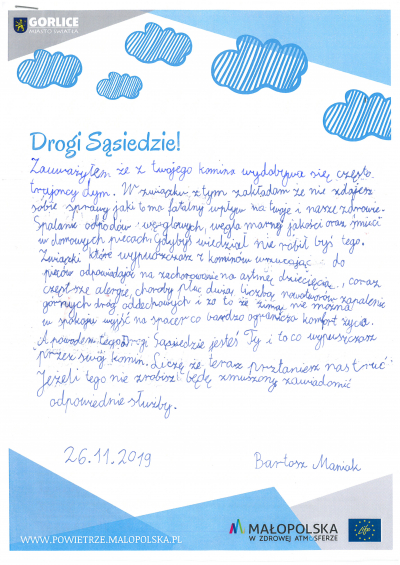 GORLICE
MIASTO ŚWIATŁA
Drogi Sąsiedzie!
Zauważyłem że z twojego komina wydobywa się często
trujoncy dym. W związku z tym zakładam że nie zdajesz
sobie sprawy jaki to ma fatalny wpływ na twoje i nasze zdrowie.
Spalanie odpodów węglowych, węgla marnej jakości oraz śmieci
w domowych piecach. Gdybyś wiedział nie robił byś tego.
Związki które wypuszczasz z kominów wrzucając do
pieców odpowiadają na zachorowanie na astmię dziecięcią, coraz
częstrze alergie, choroby płuc dużą liczbą nowotworów zapalenie
górnych dróg oddechowych i za to że zimą nie można
w spokoju wyjść na spacer co bardzo ogranicza komfort życia.
A powodem tego Drogi Sąsiedzie jesteś Ty i to co wypuszczasz
przez swój komin. Liczę że teraz przestaniesz nas truć.
Jeżeli tego nie zrobisz będę zmuszony zawiadomić
odpowiednie służby.
26.11.2019
Bartosz
WWW.POWIETRZE.MALOPOLSKA.PL
MAŁOPOLSKA
W ZDROWEJ ATMOSFERZE